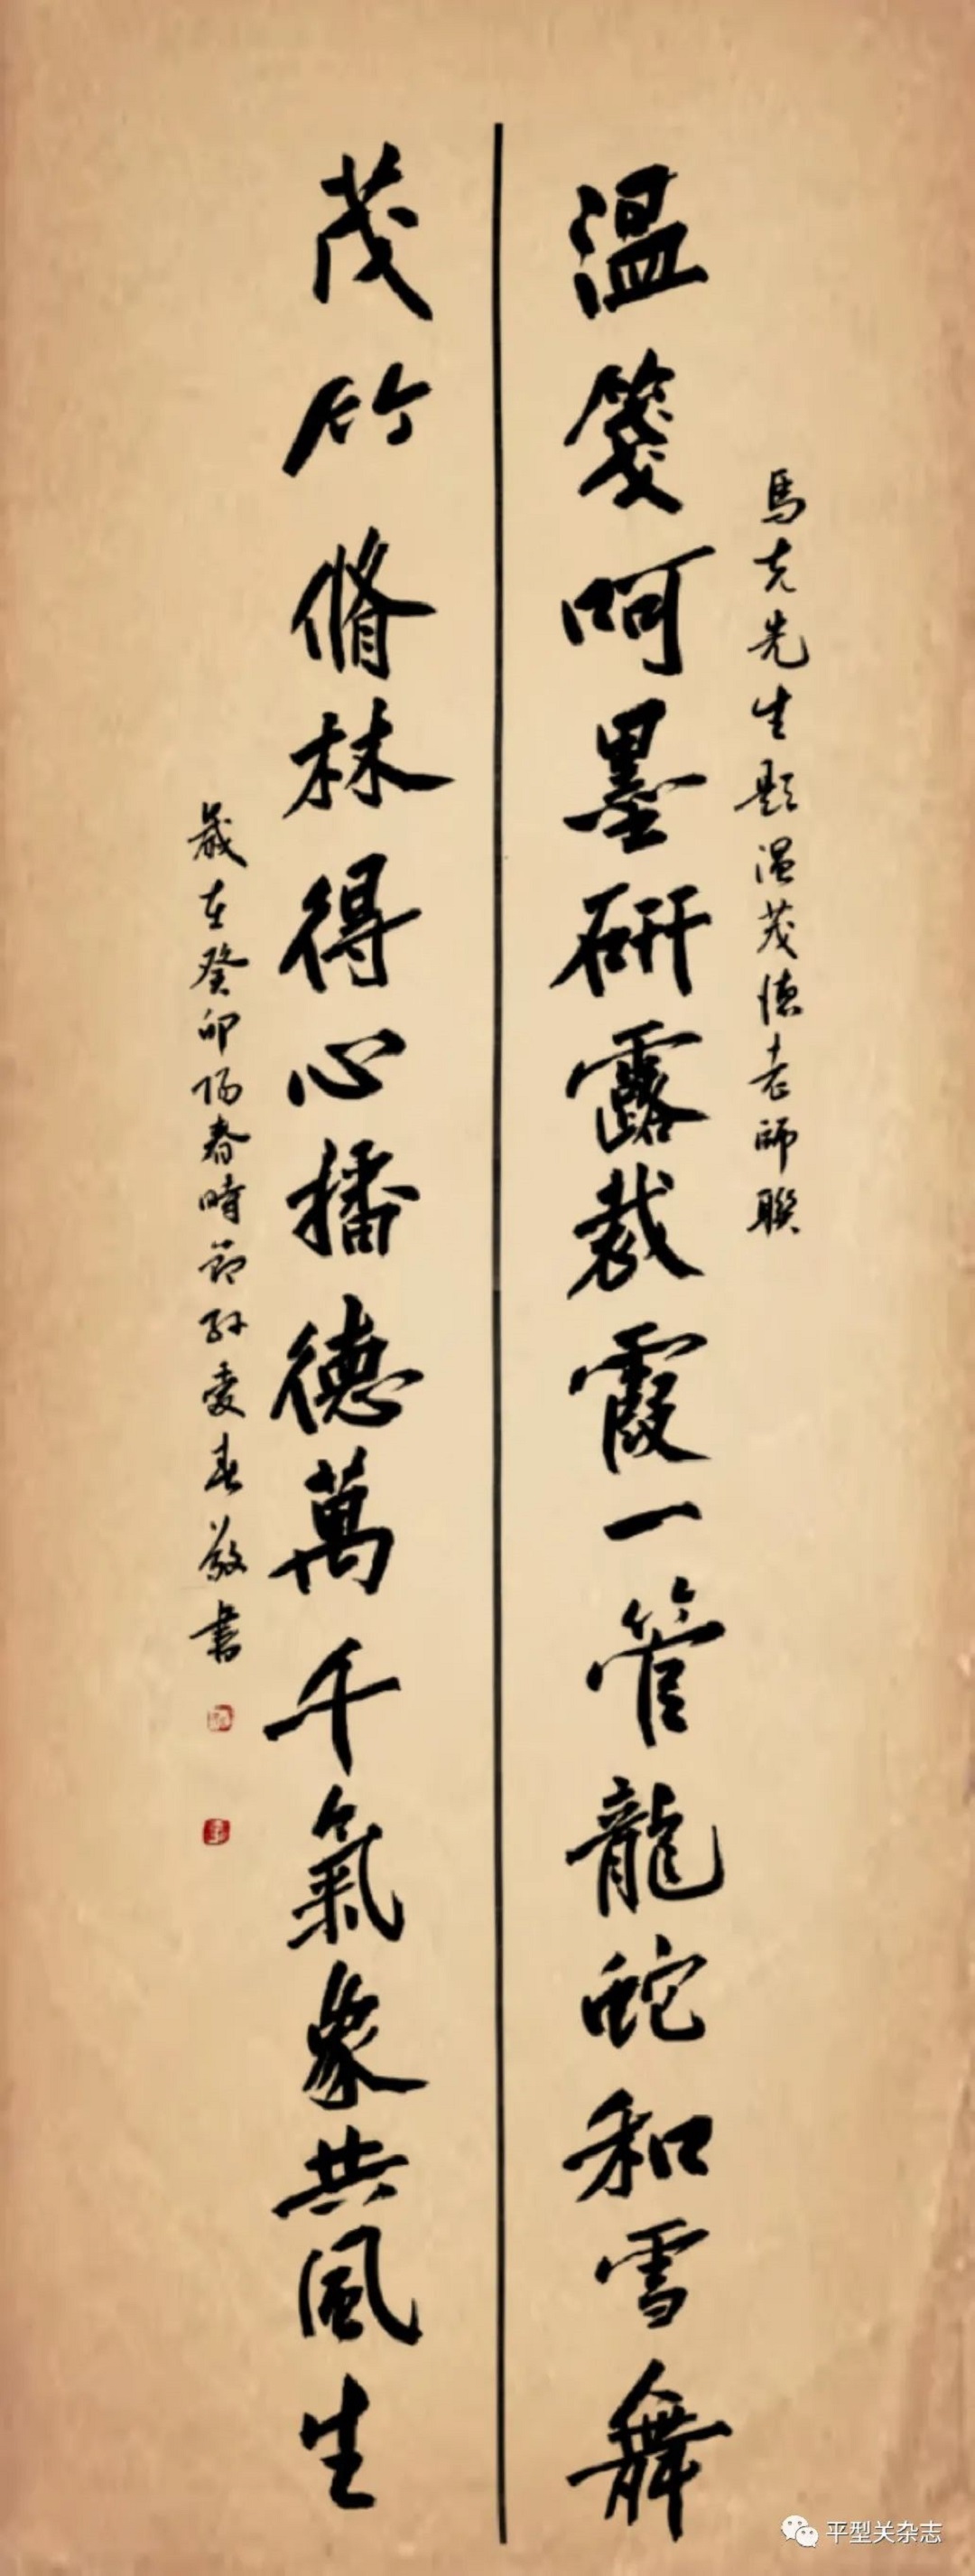 馬克先生題溫茂德老師聯
溫箋呵墨研露裁霞一管龍蛇和雪舞
茂竹脩林得心播德萬千氣象共風生
歲在癸卯陽春時節孫愛春敬書
平型关杂志